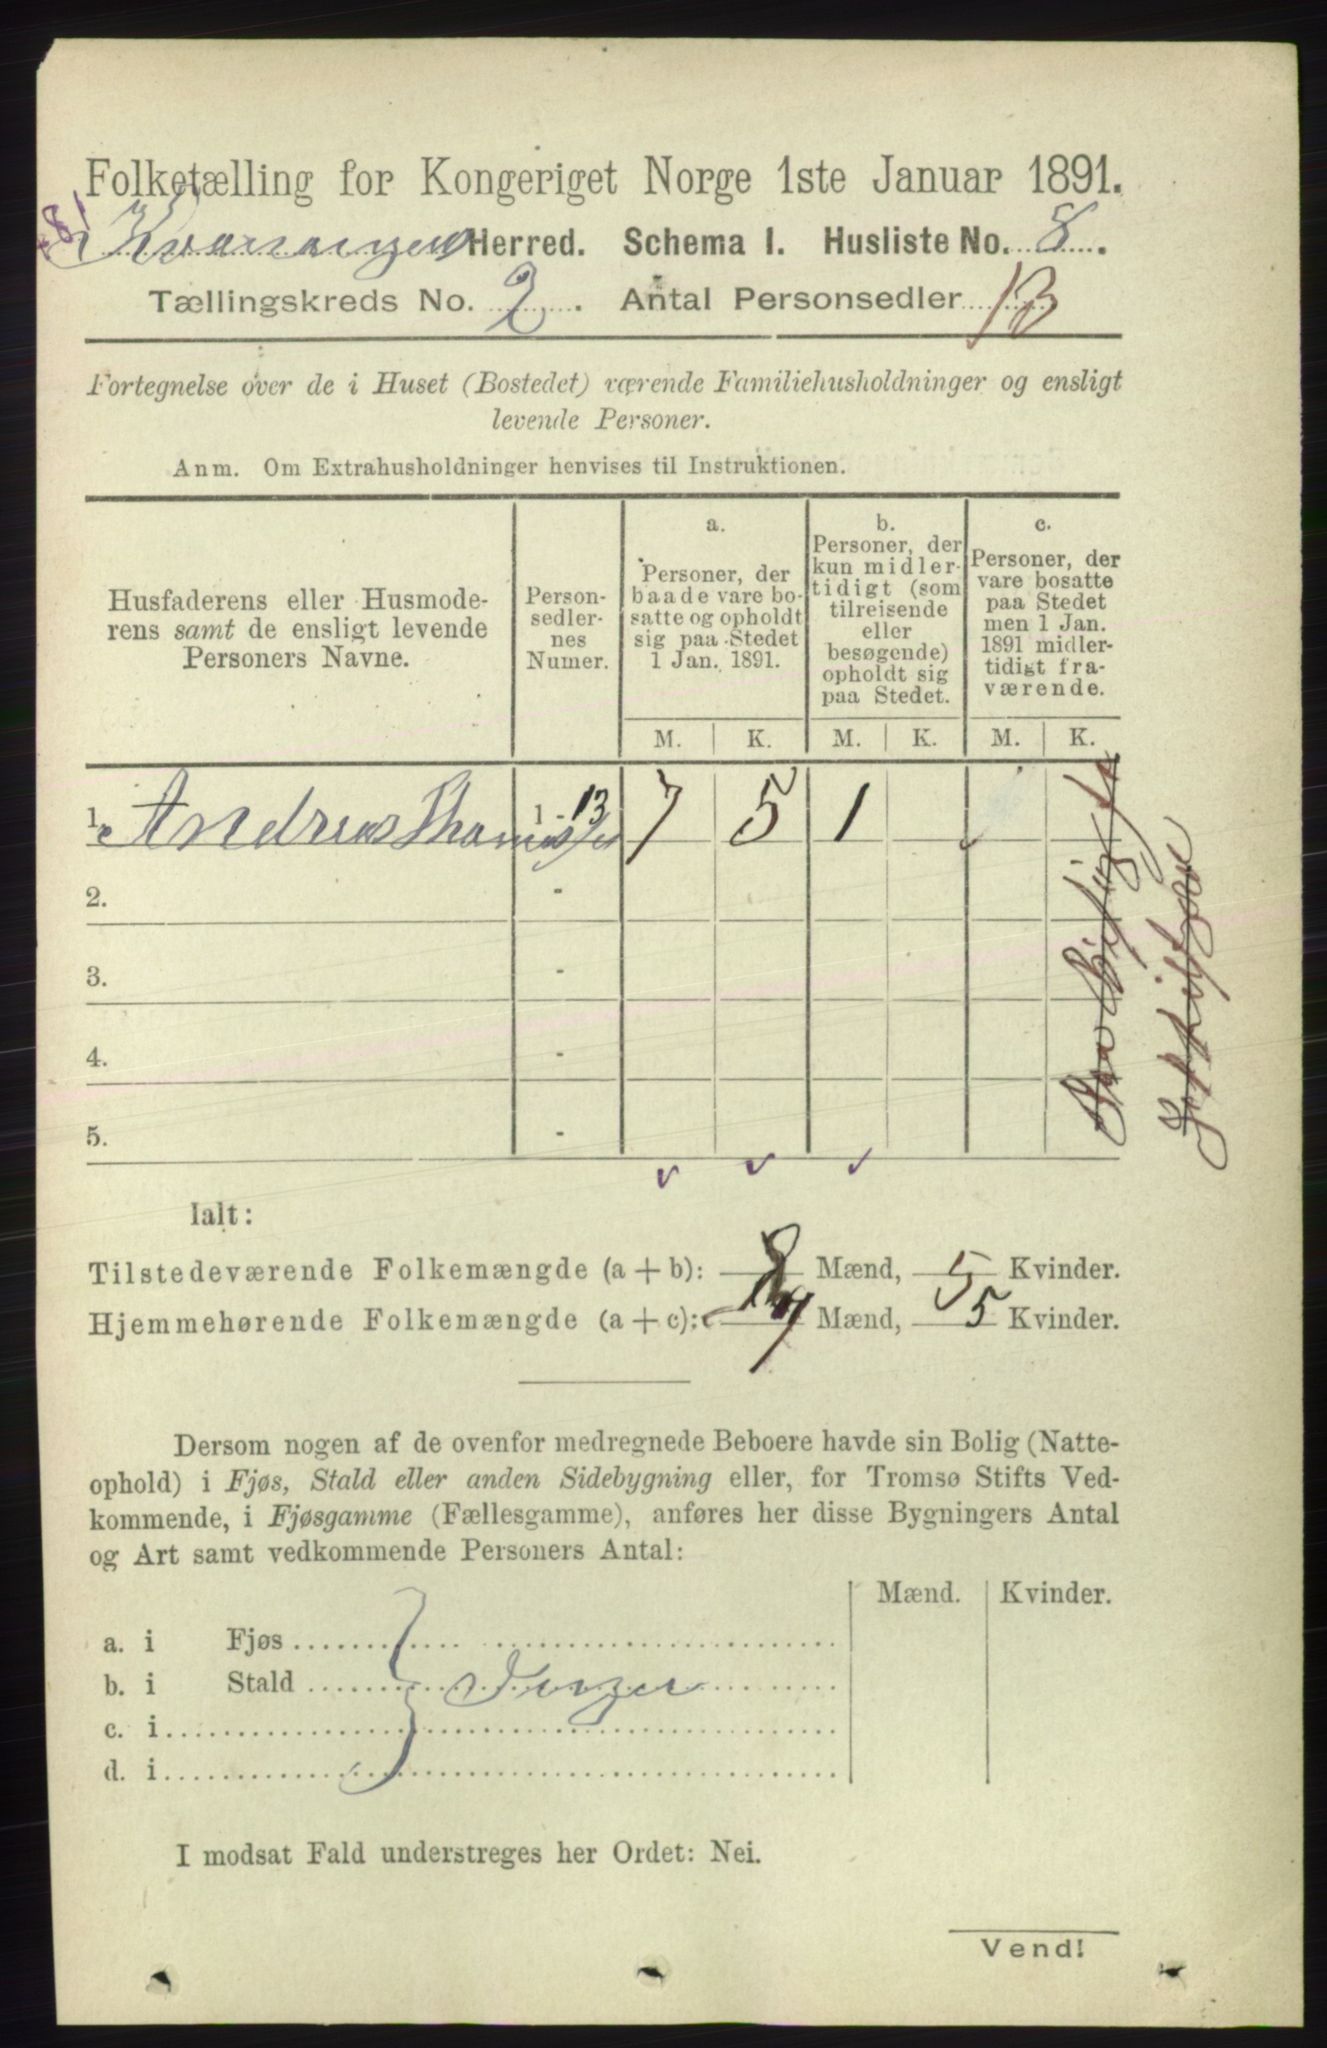 Folketælling for Kongeriget Norge 1ste Januar 1891.
Kvænangen Herred. Schema I. Husliste No. 8.
Tællingskreds No. 2. Antal Personsedler 13
Fortegnelse over de i Huset (Bostedet) værende Familiehusholdninger og ensligt
levende Personer.
Anm. Om Extrahusholdninger henvises til Instruktionen.
Husfaderens eller Husmode-
rens samt de ensligt levende
Personers Navne.
Person-
sedler-
nes
Numer.
a.
Personer, der
baade vare bo-
satte og opholdt
sig paa Stedet
1 Jan. 1891.
b.
Personer, der
kun midler-
tidigt (som
tilreisende
eller
besøgende)
opholdt sig
paa Stedet.
c.
Personer, der
vare bosatte
paa Stedet
men 1 Jan.
1891 midler-
tidigt fra-
værende.
M. K. M. K. M. K.
1. Andreas Thomas 1 - 13 7 5 1
2. -
3. -
4. -
5. -
Ialt:
Tilstedeværende Folkemængde (a + b): 8 Mænd, 5 Kvinder.
Hjemmehørende Folkemængde (a + c): 7 Mænd, 5 Kvinder.
Dersom nogen af de ovenfor medregnede Beboere havde sin Bolig (Natte-
ophold) i Fjøs, Stald eller anden Sidebygning eller, for Tromsø Stifts Ved-
kommende, i Fjøsgamme (Fællesgamme), anføres her disse Bygningers Antal
og Art samt vedkommende Personers Antal:
Mænd. Kvinder.
a. i Fjøs
b. i Stald Inger
c. i
d. i
I modsat Fald understreges her Ordet: Nei.
Vend!